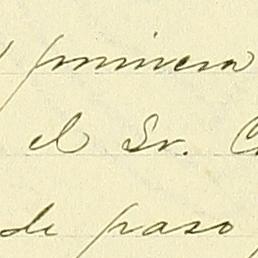 primera
el Sr. C
de paso